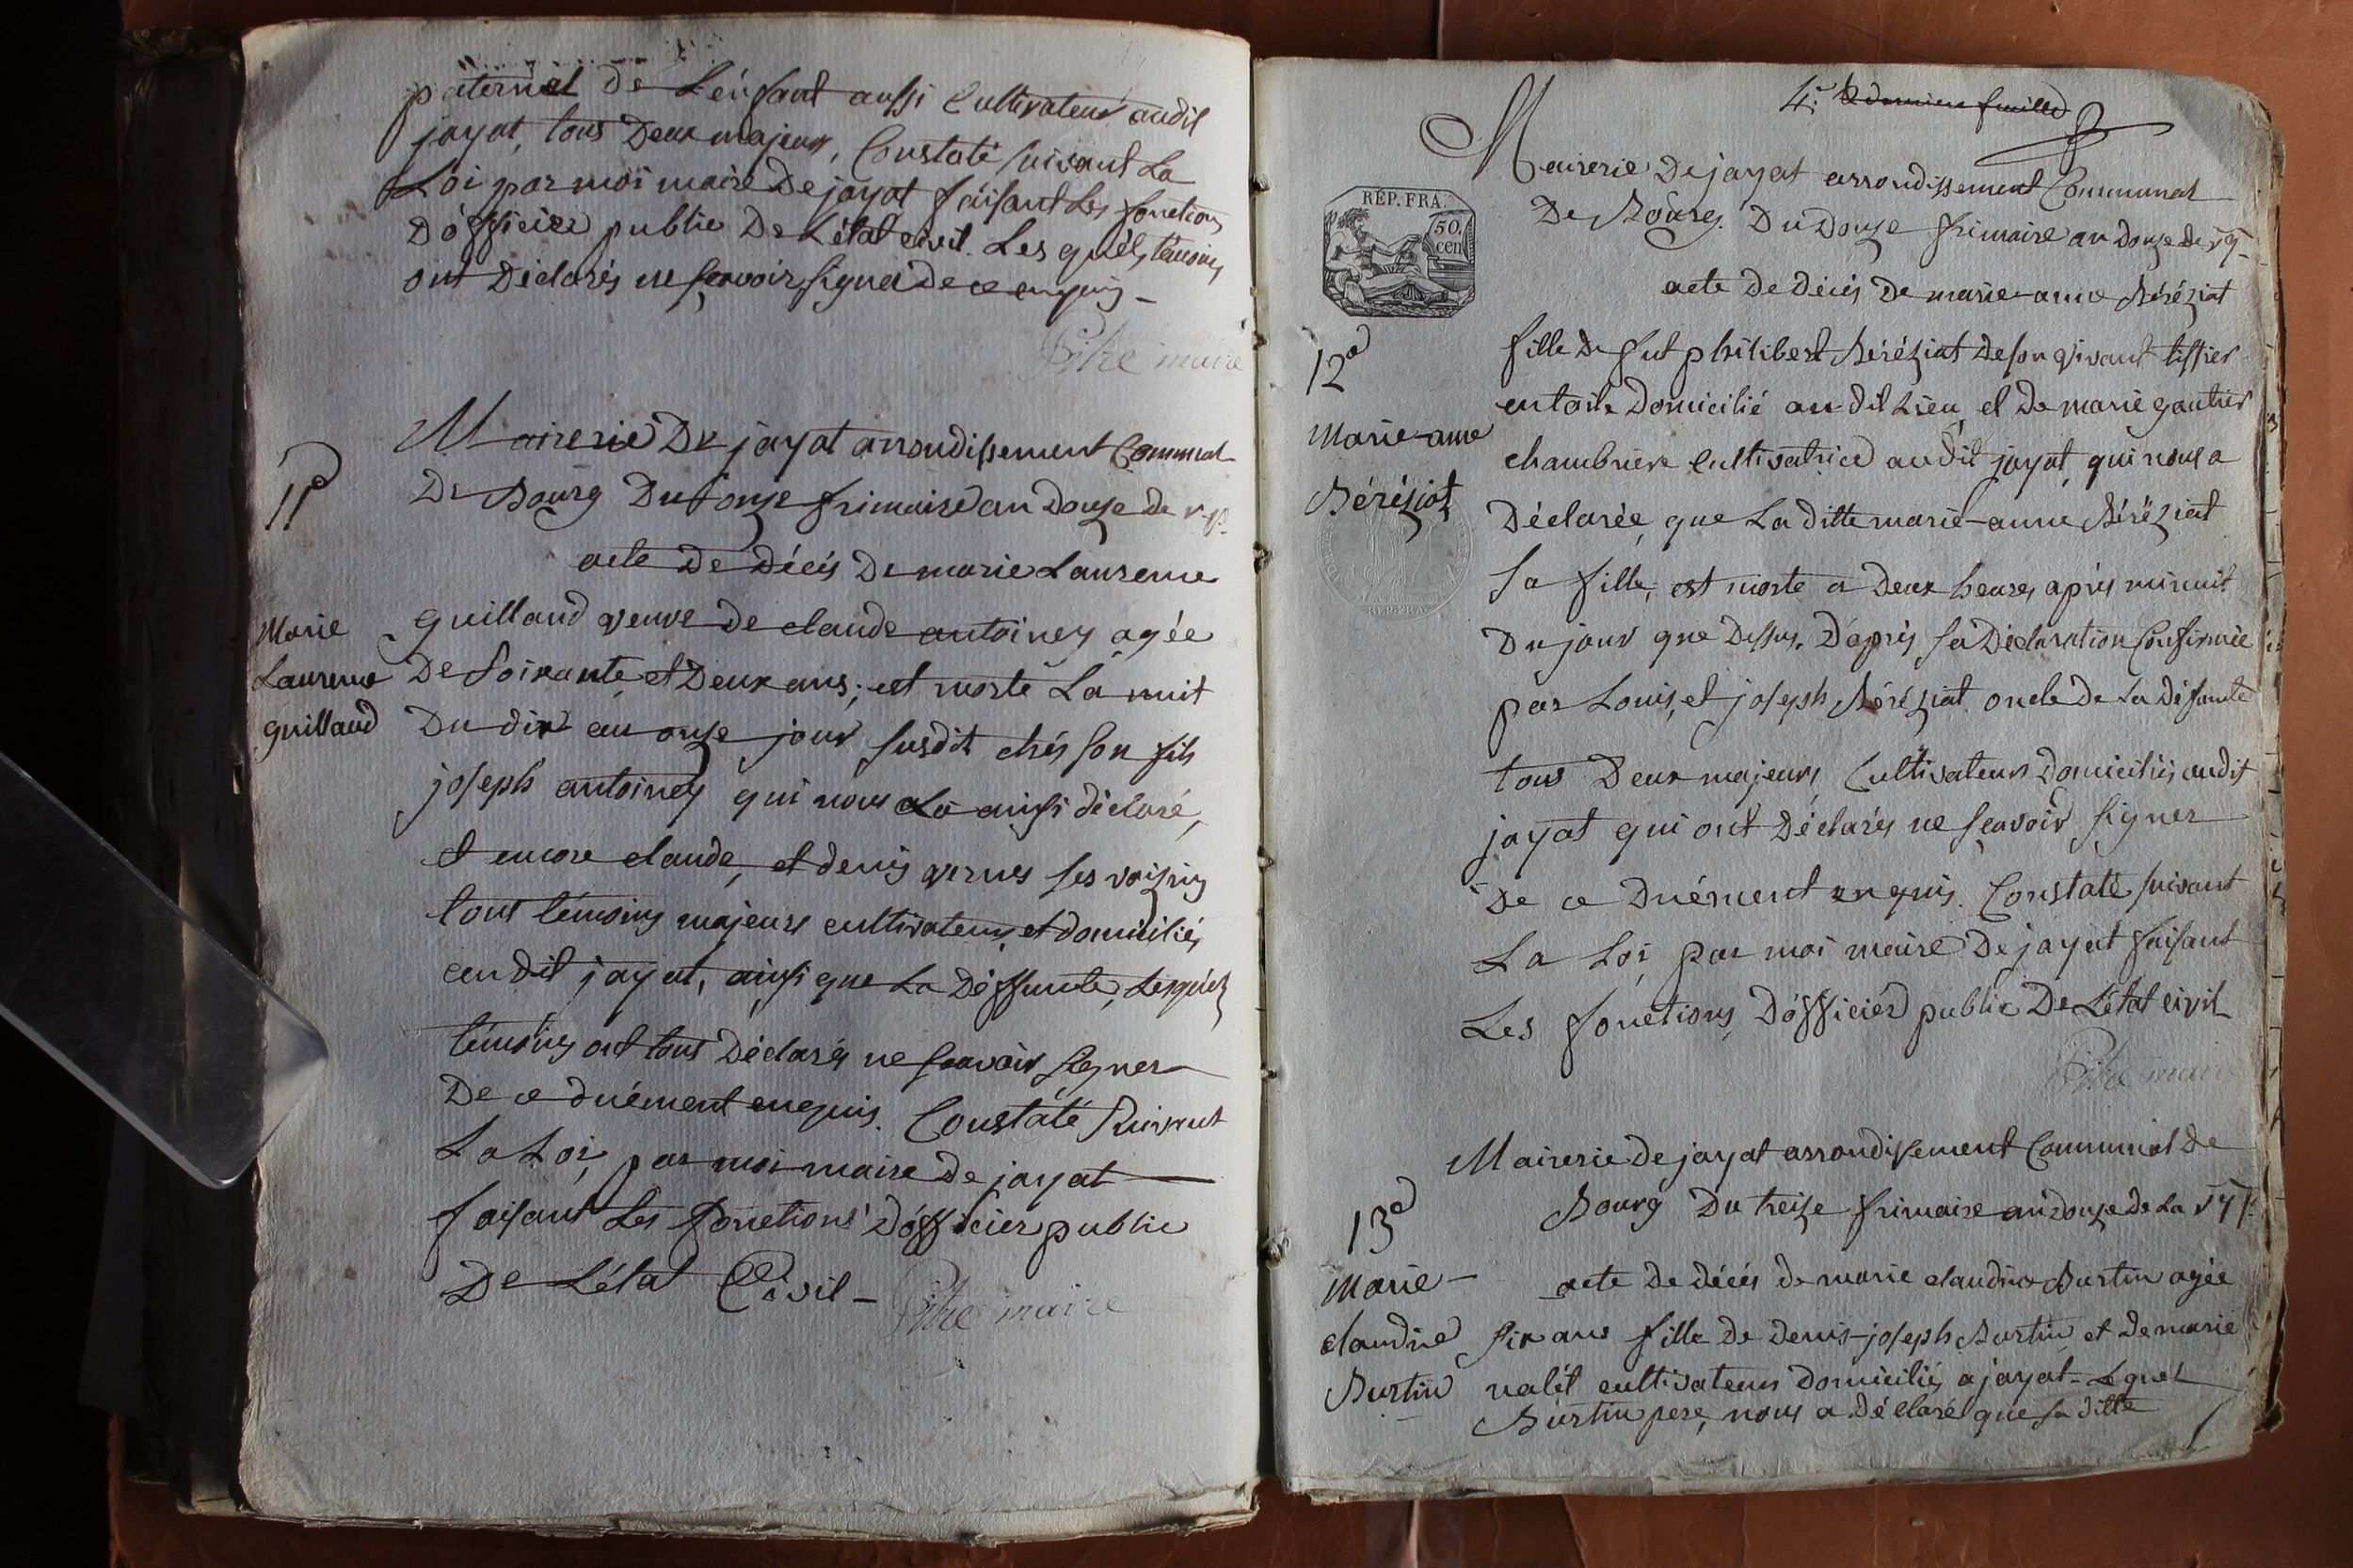 paternel de L'enfant aussi Cultivateur audit
jayat, tous Deux majeurs, Constaté suivant La
Loi par moi maire de jayat faisant Les fonctions
D'officier public De L'état civil. Les quéls témoins
ont Déclarés ne sçavoir signer de ce enquis -
Pitre maire
11e
Mairerie De jayat arrondissement Communal
De Bourg Du onze frimaire an Douze de r.p.
acte De Décés De marie Laurence
Marie Laurence guilland
guilland veuve de claude antoiney agée
De Soixante et Deux ans; est morte La nuit
Du dix au onze jour susdit chés son fils
joseph antoiney qui nous La ainsi déclaré,
et encore claude, et denis vernes ses voisins
tous témoins majeurs cultivateurs et domiciliés
audit jayat, ainsi que La Déffunte, Lesquéls
témoins ont tous Déclarés ne sçavoir signer
De ce duément enquis. Constaté Suivant
La Loi, par moi maire de jayat
faisant Les fonctions D'officier public
De L'état Civil -
Pitre maire
4e. & dernier feuillet
Mairerie De jayat arrondissement Communal
De Bourg. Du Douze frimaire an douze de
REP. FRA.
50. cen
acte De Décés De marie-anne Béréziat
12e
Marie-anne
Béréziat
fille De fut philibert Béréziat de son vivant tissier
en toile Domicilié audit Lieu, et De marie gautier
chambrière Cultivatrice audit jayat, qui nous a
Déclarée, que La ditte marie-anne Béréziat
sa fille, est morte a Deux heures aprés minuit
Du jour que Dessus. D'aprés sa Déclaration Confirmée
par Louis, et joseph Béréziat oncle de La défunte
tous Deux majeurs, Cultivateurs Domiciliés audit
jayat qui ont Déclarés ne sçavoir signer
De ce Duément enquis. Constaté suivant
La Loi par moi maire De jayat faisant
Les fonctions D'officier public De L'état civil
Pitre maire
Mairerie de jayat arrondissement Communal de
Bourg Du treize frimaire an douze de La
13e
Marie -
claudine
Burtin
acte De décés de marie claudine Burtin agée
six ans fille De Denis-joseph Burtin et De marie
valét cultivateurs domiciliés a jayat - Lequel
Burtin pere, nous a déclaré que sa ditte